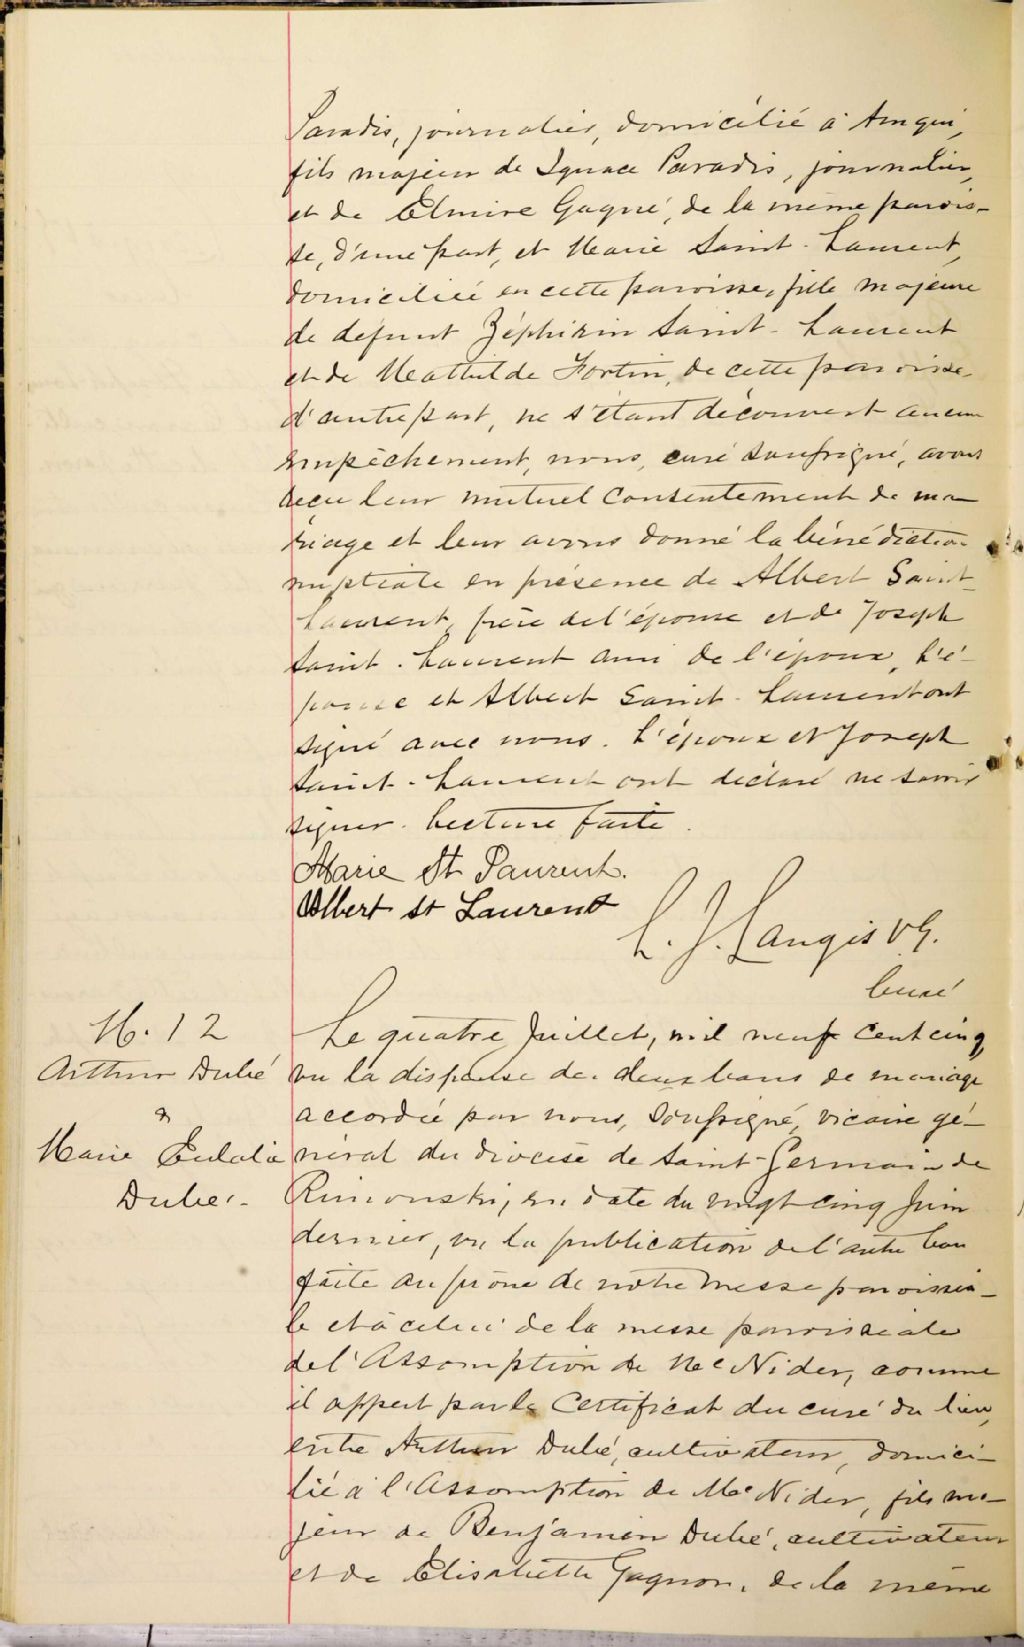 Paradis, journalier, domicilié à Amqui,
fils majeur de Ignace Paradis, journalier,
et de Elmire Gagné, de la même parois-
se, d'une part, et Marie Saint-Laurent,
domiciliée en cette paroisse, fille majeure
de défunt Zéphirin Saint-Laurent
et de Mathilde Fortin, de cette paroisse,
d'autre part, ne s'étant découvert aucun
empêchement, nous, curé soussigné, avons
reçu leur mutuel consentement de ma
riage et leur avons donné la bénédiction
nuptiale en présence de Albert Saint-
Laurent, frère de l'épouse et de Joseph
Saint-Laurent ami de l'époux, L'é-
pouse et Albert Saint-Laurent ont
signé avec nous. L'époux et Joseph
Saint-Laurent ont déclaré ne savoir
signer. Lecture faite.
Marie St Laurent.
Albert St Laurent
L. J. Langis V.G.
Curé
M. 12
Arthur Dubé
&
Marie Eulalie
Dubé.-
Le quatre Juillet, mil neuf cent cinq,
vu la dispense de deux bans de mariage
accordée par nous, Soussigné, vicaire gé-
néral du diocèse de Saint-Germain de
Rimouski, en date du vingt cinq Juin
dernier, vu la publication de l'autre ban
faite au prône de notre messe paroissia-
le et à celui de la messe paroissiale
de l'Assomption de McNider, comme
il appert par le Certificat du curé du lieu,
entre Arthur Dubé, cultivateur, domici-
lié à l'Assomption de McNider, fils ma-
jeur de Benjamin Dubé, cultivateur
et de Elisabeth Gagnon, de la même